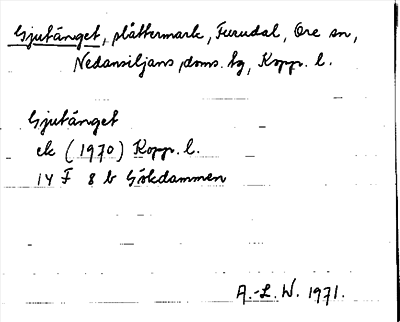 Gjutänget, slåttermark, Furudal, Ore sn,
Nedansiljans doms. tg, Kopp. l.
Gjutänget
ek (1970) Kopp. l.
14 F 8 b Gökdammen
A.-L. W. 1971.